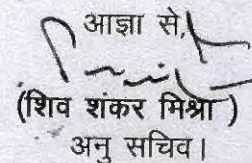 आज्ञा से,
(शिव शंकर मिश्रा )
अनु सचिव।